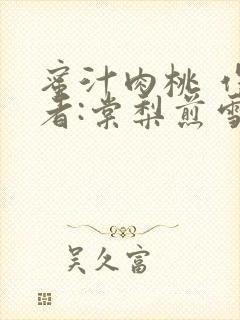 蜜汁肉桃 作
者:棠梨煎雪
吴久富